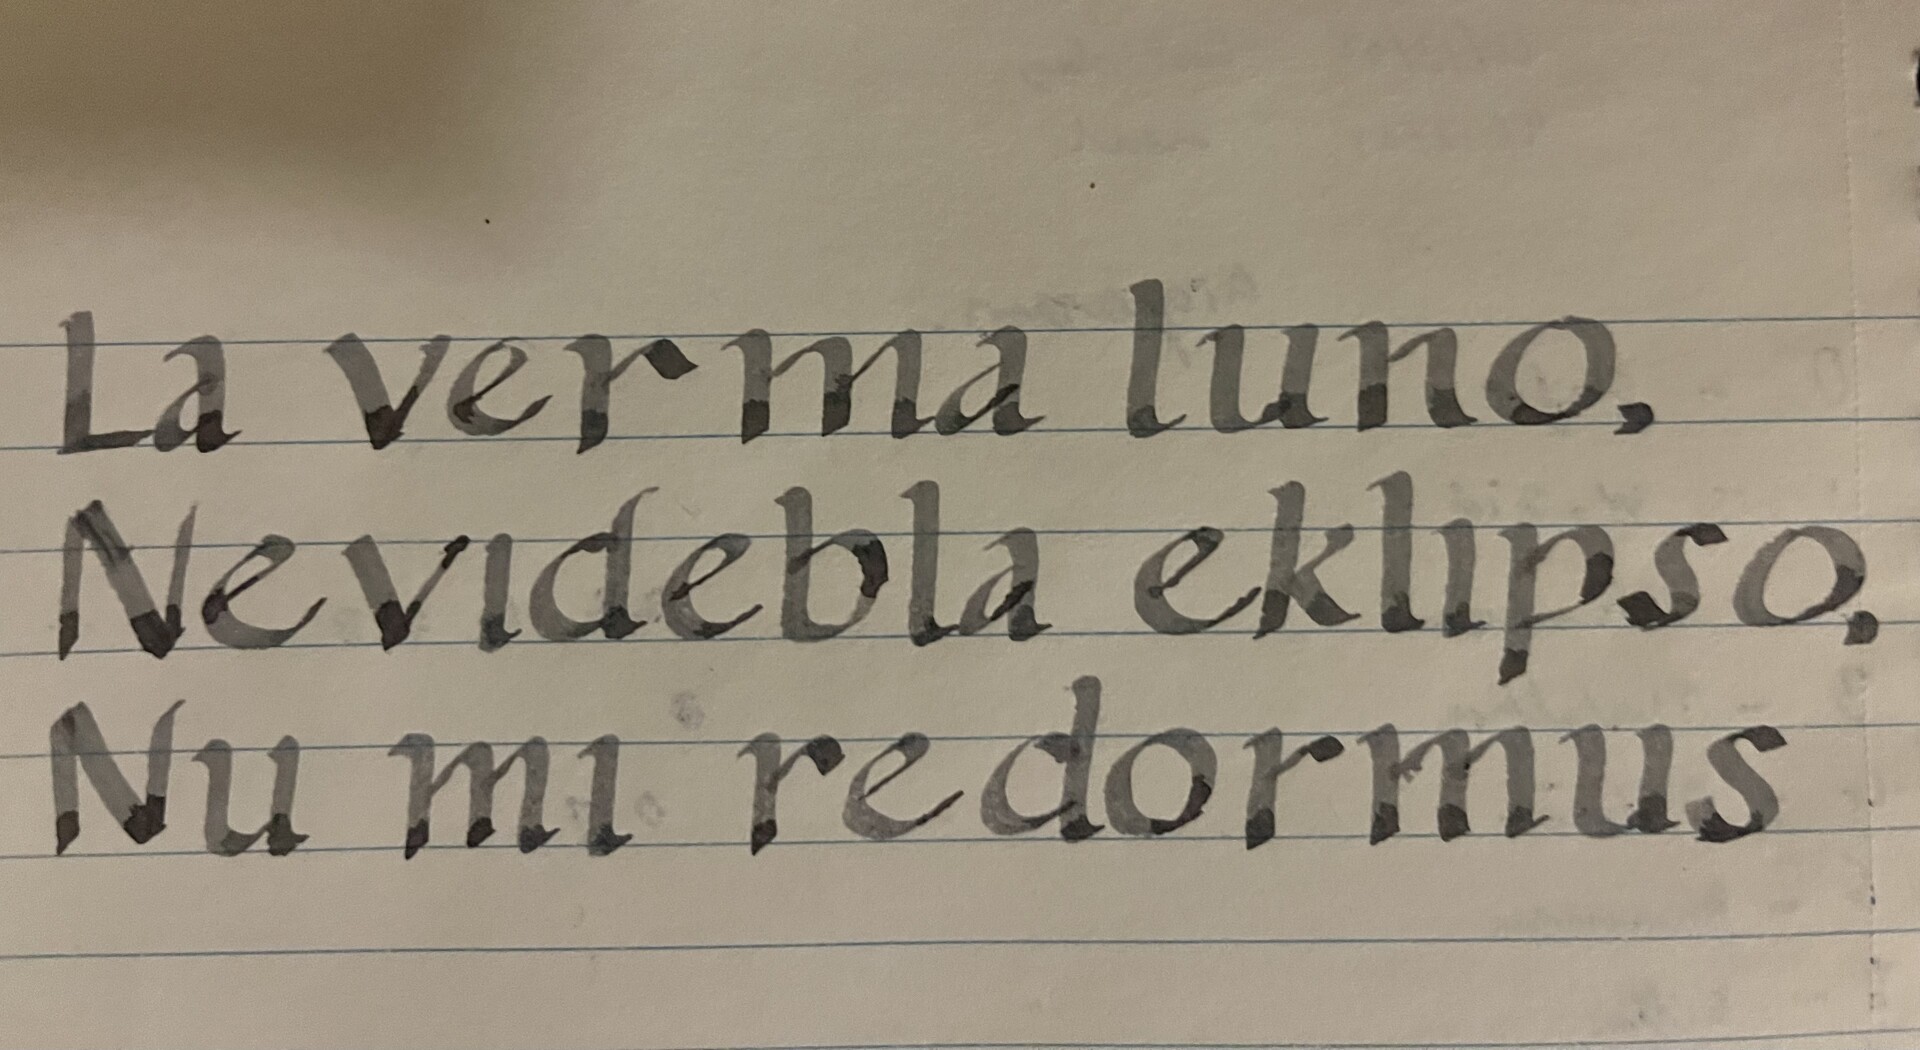 La verma luno,
Nevidebla eklipso,
Nu mi redormus